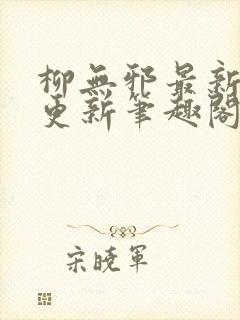 柳無邪最新
更新筆趣閣
宋曉軍